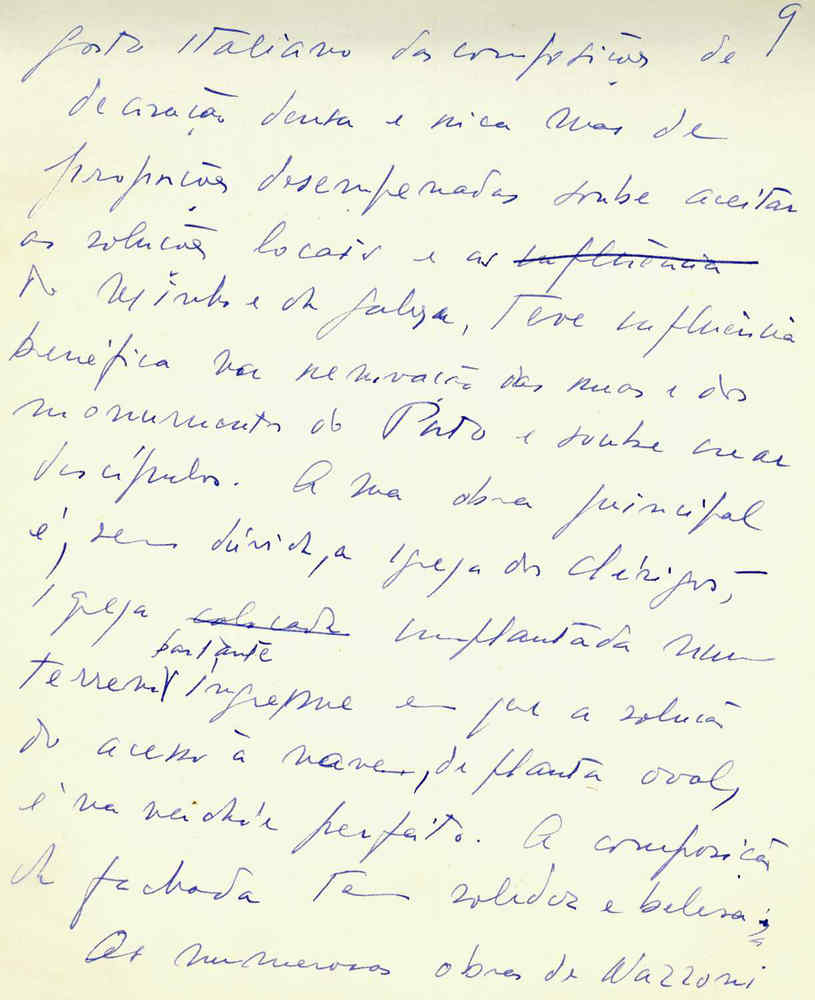 9
gosto italiano das composições de
decoração densa e rica mas de
proporções desempenadas soube aceitar
as soluções locais e as influência
do Minho e da Galiza, Teve influência
benéfica na renovação das ruas e dos
monumentos do Porto e soube criar
discípulos. A sua obra principal
é, sem dúvida, a igreja dos Clérigos,
igreja colocada implantada num
bastante
terreno íngreme em que a solução
do acesso à nave, de planta oval,
é na verdade perfeito. A composição
da fachada tem solidez e beleza;
As numerosas obras de Nazzoni